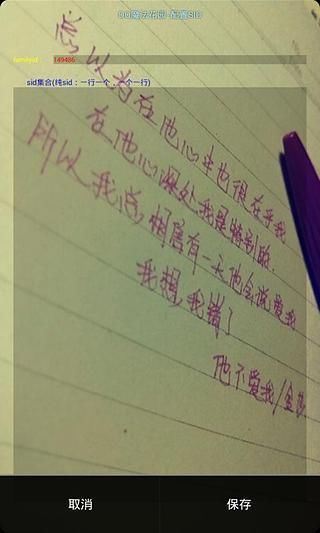 QQ魔法花园-配置SID
familyid：
149486
sid集合(纯sid：一行一个，一个一行)
总以为在他心中也很在乎我
在他心深处我是特别的.
所以我总相信有一天他会说爱我
我想,我错了
他不爱我/
取消
保存